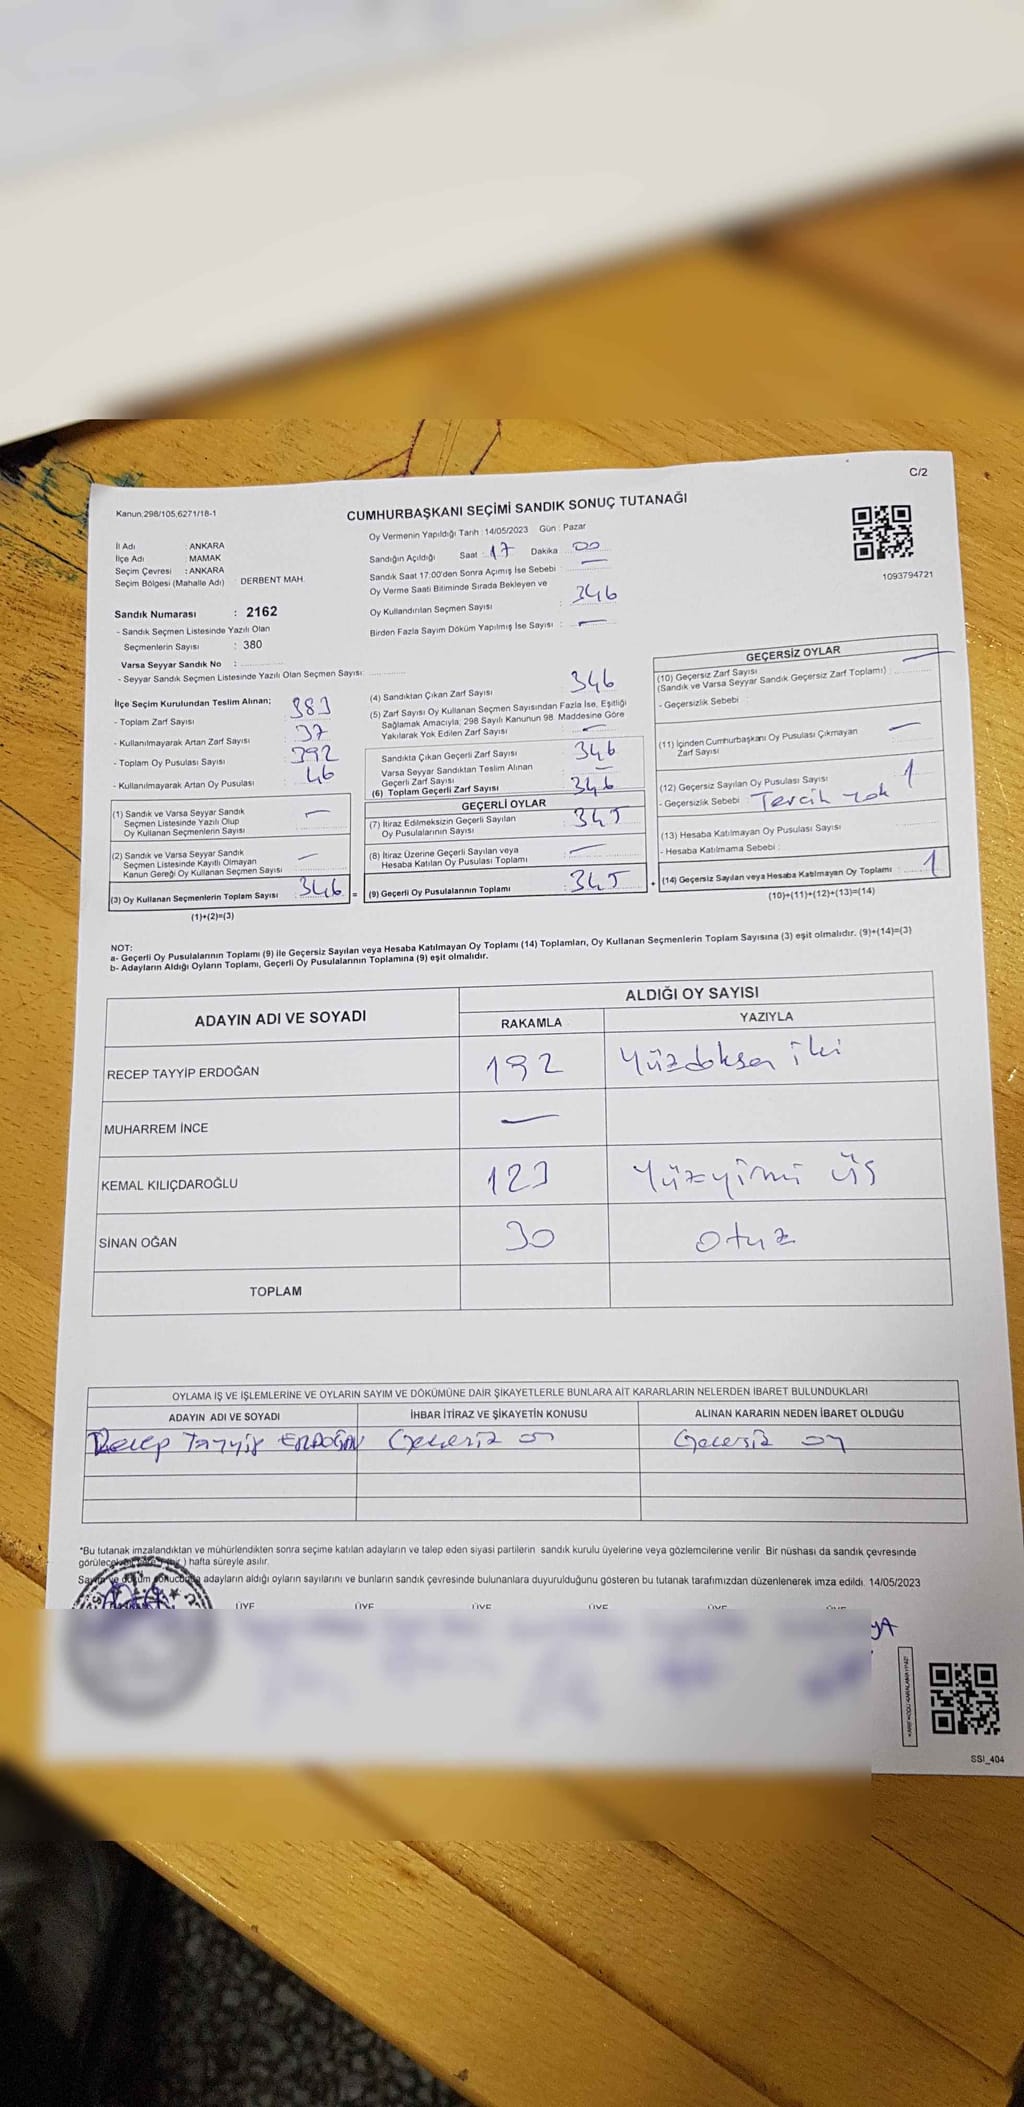 C/2
Kanun:298/105,6271/18-1
CUMHURBAŞKANI SEÇİMİ SANDIK SONUÇ TUTANAĞI
İl Adı : ANKARA
İlçe Adı : MAMAK
Seçim Çevresi : ANKARA
Seçim Bölgesi (Mahalle Adı) : DERBENT MAH.
Sandık Numarası : 2162
- Sandık Seçmen Listesinde Yazılı Olan
Seçmenlerin Sayısı : 380
Varsa Seyyar Sandık No :
- Seyyar Sandık Seçmen Listesinde Yazılı Olan Seçmen Sayısı:
Oy Vermenin Yapıldığı Tarih : 14/05/2023 Gün : Pazar
Sandığın Açıldığı Saat : 17 Dakika 00
Sandık Saat 17:00'den Sonra Açımış İse Sebebi : —
Oy Verme Saati Bitiminde Sırada Bekleyen ve
Oy Kullandırılan Seçmen Sayısı : 346
Birden Fazla Sayım Döküm Yapılmış İse Sayısı : —
1093794721
İlçe Seçim Kurulundan Teslim Alınan;
- Toplam Zarf Sayısı : 383
- Kullanılmayarak Artan Zarf Sayısı : 37
- Toplam Oy Pusulası Sayısı : 392
- Kullanılmayarak Artan Oy Pusulası : 46
(1) Sandık ve Varsa Seyyar Sandık
Seçmen Listesinde Yazılı Olup
Oy Kullanan Seçmenlerin Sayısı —
(2) Sandık ve Varsa Seyyar Sandık
Seçmen Listesinde Kayıtlı Olmayan
Kanun Gereği Oy Kullanan Seçmen Sayısı —
(3) Oy Kullanan Seçmenlerin Toplam Sayısı 346 =
(1)+(2)=(3)
(4) Sandıktan Çıkan Zarf Sayısı 346
(5) Zarf Sayısı Oy Kullanan Seçmen Sayısından Fazla İse, Eşitliği
Sağlamak Amacıyla; 298 Sayılı Kanunun 98. Maddesine Göre
Yakılarak Yok Edilen Zarf Sayısı —
Sandıkta Çıkan Geçerli Zarf Sayısı 346
Varsa Seyyar Sandıktan Teslim Alınan
Geçerli Zarf Sayısı —
(6) Toplam Geçerli Zarf Sayısı 346
GEÇERLİ OYLAR
(7) İtiraz Edilmeksizin Geçerli Sayılan
Oy Pusulalarının Sayısı : 345
(8) İtiraz Üzerine Geçerli Sayılan veya
Hesaba Katılan Oy Pusulası Toplamı : —
(9) Geçerli Oy Pusulalarının Toplamı : 345 +
GEÇERSİZ OYLAR
(10) Geçersiz Zarf Sayısı
(Sandık ve Varsa Seyyar Sandık Geçersiz Zarf Toplamı) : —
- Geçersizlik Sebebi :
(11) İçinden Cumhurbaşkanı Oy Pusulası Çıkmayan
Zarf Sayısı —
(12) Geçersiz Sayılan Oy Pusulası Sayısı : 1
- Geçersizlik Sebebi : Tercih yok
(13) Hesaba Katılmayan Oy Pusulası Sayısı
- Hesaba Katılmama Sebebi :
(14) Geçersiz Sayılan veya Hesaba Katılmayan Oy Toplamı : 1
(10)+(11)+(12)+(13)=(14)
NOT:
a- Geçerli Oy Pusulalarının Toplamı (9) ile Geçersiz Sayılan veya Hesaba Katılmayan Oy Toplamı (14) Toplamları, Oy Kullanan Seçmenlerin Toplam Sayısına (3) eşit olmalıdır. (9)+(14)=(3)
b- Adayların Aldığı Oyların Toplamı, Geçerli Oy Pusulalarının Toplamına (9) eşit olmalıdır.
ADAYIN ADI VE SOYADI
ALDIĞI OY SAYISI
RAKAMLA YAZIYLA
RECEP TAYYİP ERDOĞAN 192 Yüzdoksan iki
MUHARREM İNCE —
KEMAL KILIÇDAROĞLU 123 Yüzyirmi üç
SİNAN OĞAN 30 otuz
TOPLAM
OYLAMA İŞ VE İŞLEMLERİNE VE OYLARIN SAYIM VE DÖKÜMÜNE DAİR ŞİKAYETLERLE BUNLARA AİT KARARLARIN NELERDEN İBARET BULUNDUKLARI
ADAYIN ADI VE SOYADI İHBAR İTİRAZ VE ŞİKAYETİN KONUSU ALINAN KARARIN NEDEN İBARET OLDUĞU
Recep Tayyip ERDOĞAN Geçersiz oy Geçersiz oy
*Bu tutanak imzalandıktan ve mühürlendikten sonra seçime katılan adayların ve talep eden siyasi partilerin sandık kurulu üyelerine veya gözlemcilerine verilir. Bir nüshası da sandık çevresinde
hafta süreyle asılır.
adayların aldığı oyların sayılarını ve bunların sandık çevresinde bulunanlara duyurulduğunu gösteren bu tutanak tarafımızdan düzenlenerek imza edildi. 14/05/2023
ÜYE ÜYE ÜYE ÜYE ÜYE
SSI_404